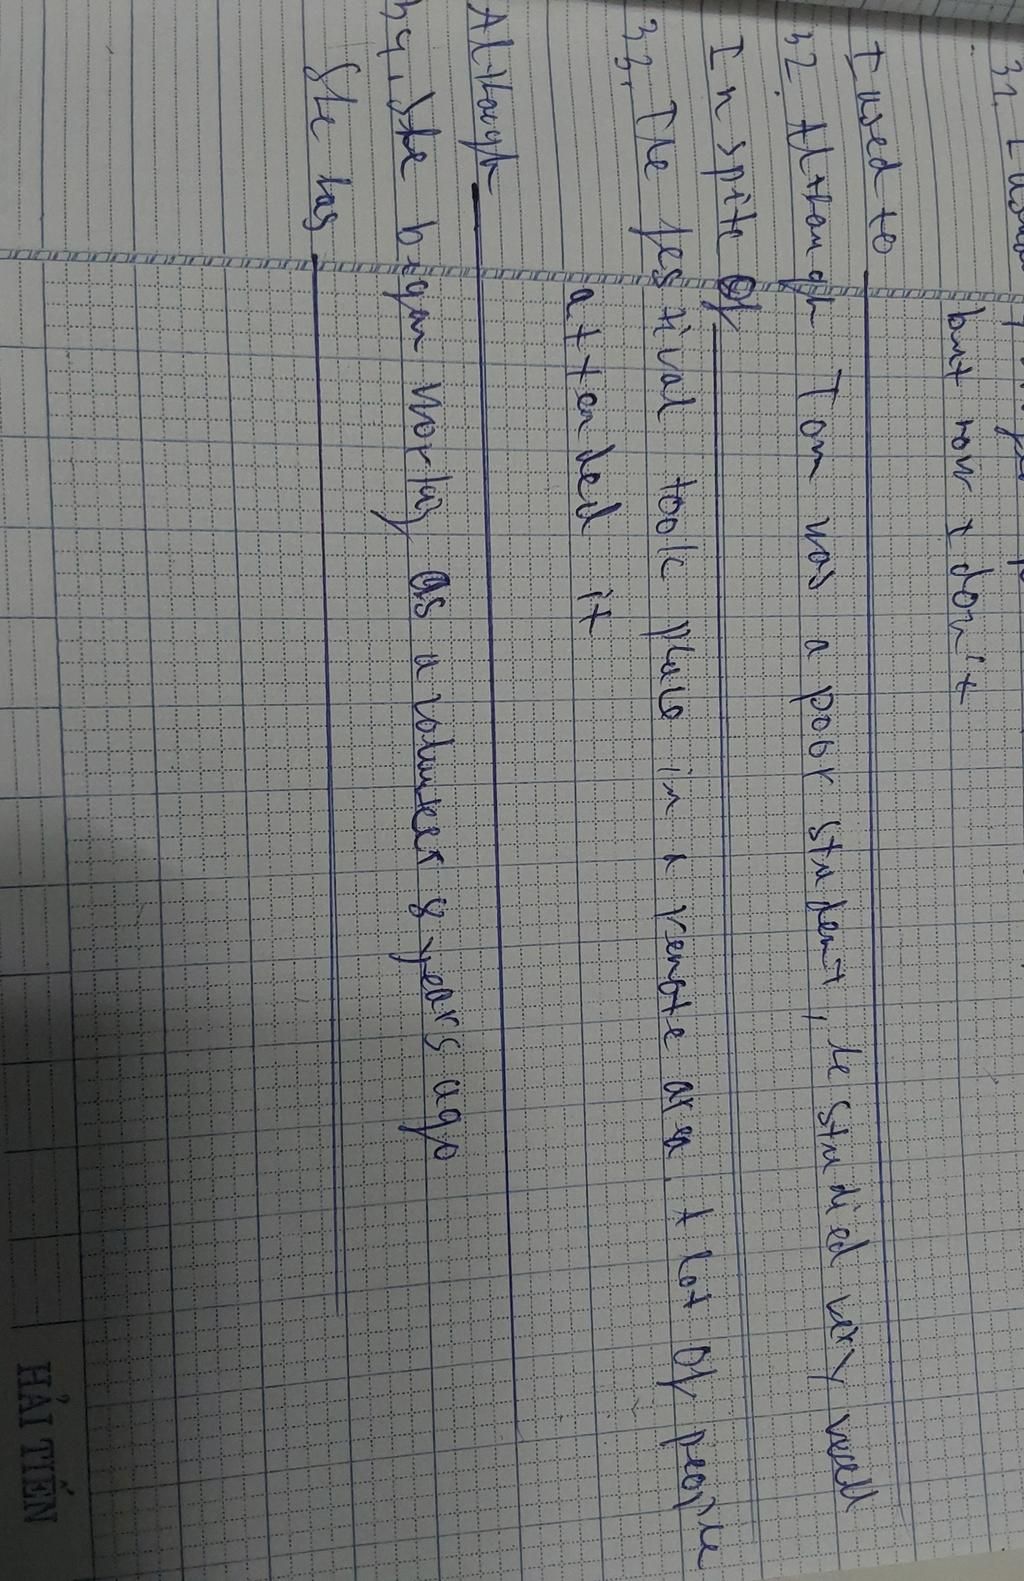 31. I
but now I don't
I used to
32. Although Tom was a poor student, he studied very well
In spite of
33. The festival took place in a remote area. A lot of people
attended it
Although
34. She began working as a volunteer 8 years ago
She has
HẢI TIẾN